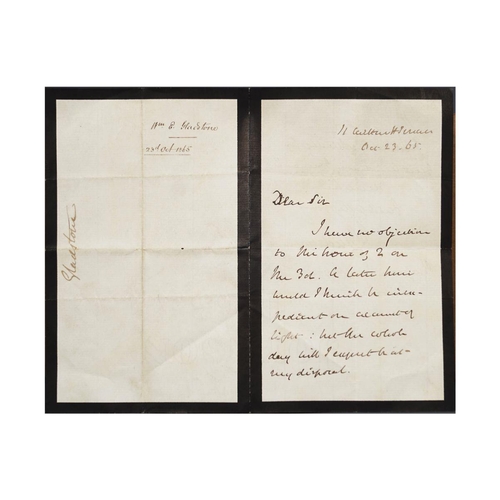 Wm E. Gladstone
23d Oct 1865
Gladstone
11 Carlton H. Terrace
Oct 23. 65
Dear Sir
I have no objection
to the hour of 2 on
the 3d. A later hour
would I think be inex-
pedient on account of
light: but the whole
day will I expect be at
my disposal.